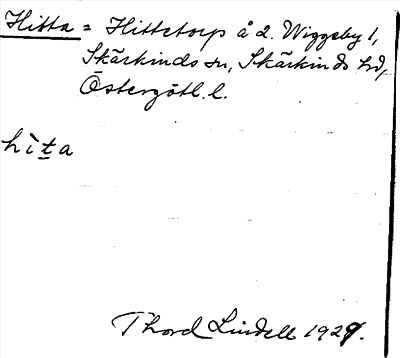 Hitta = Hittetorp å 2. Wiggeby 1,
Skärkinds sn, Skärkinds hd,
Östergötl. l.
hìṯa
Thord Lindell 1929.